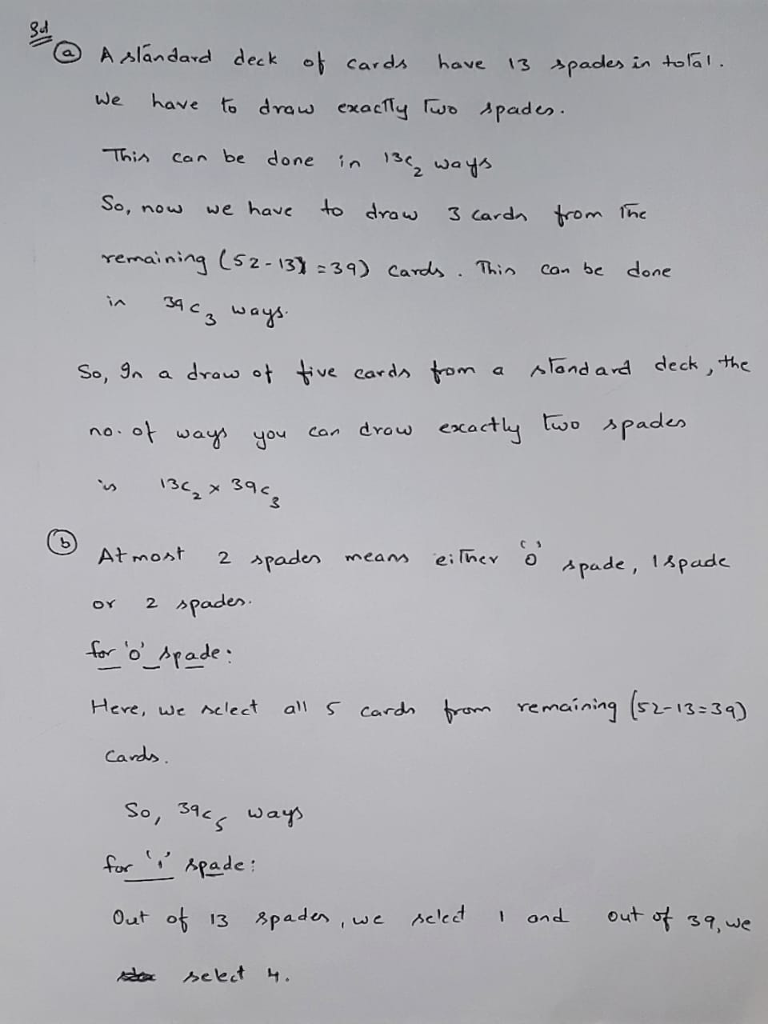 3d
(a) A standard deck of cards have 13 spades in total.
we have to draw exactly two spades.
This can be done in 13C₂ ways
So, now we have to draw 3 cards from the
remaining (52-13=39) cards. This can be done
in 39C₃ ways.
So, In a draw of five cards from a standard deck, the
no. of ways you can draw exactly two spades
is 13C₂ × 39C₃
(b) At most 2 spades means either '0' spade, 1 spade
or 2 spades.
for '0' spade:
Here, we select all 5 cards from remaining (52-13=39)
cards.
So, 39C₅ ways
for '1' spade:
Out of 13 spades, we select 1 and out of 39, we
select 4.